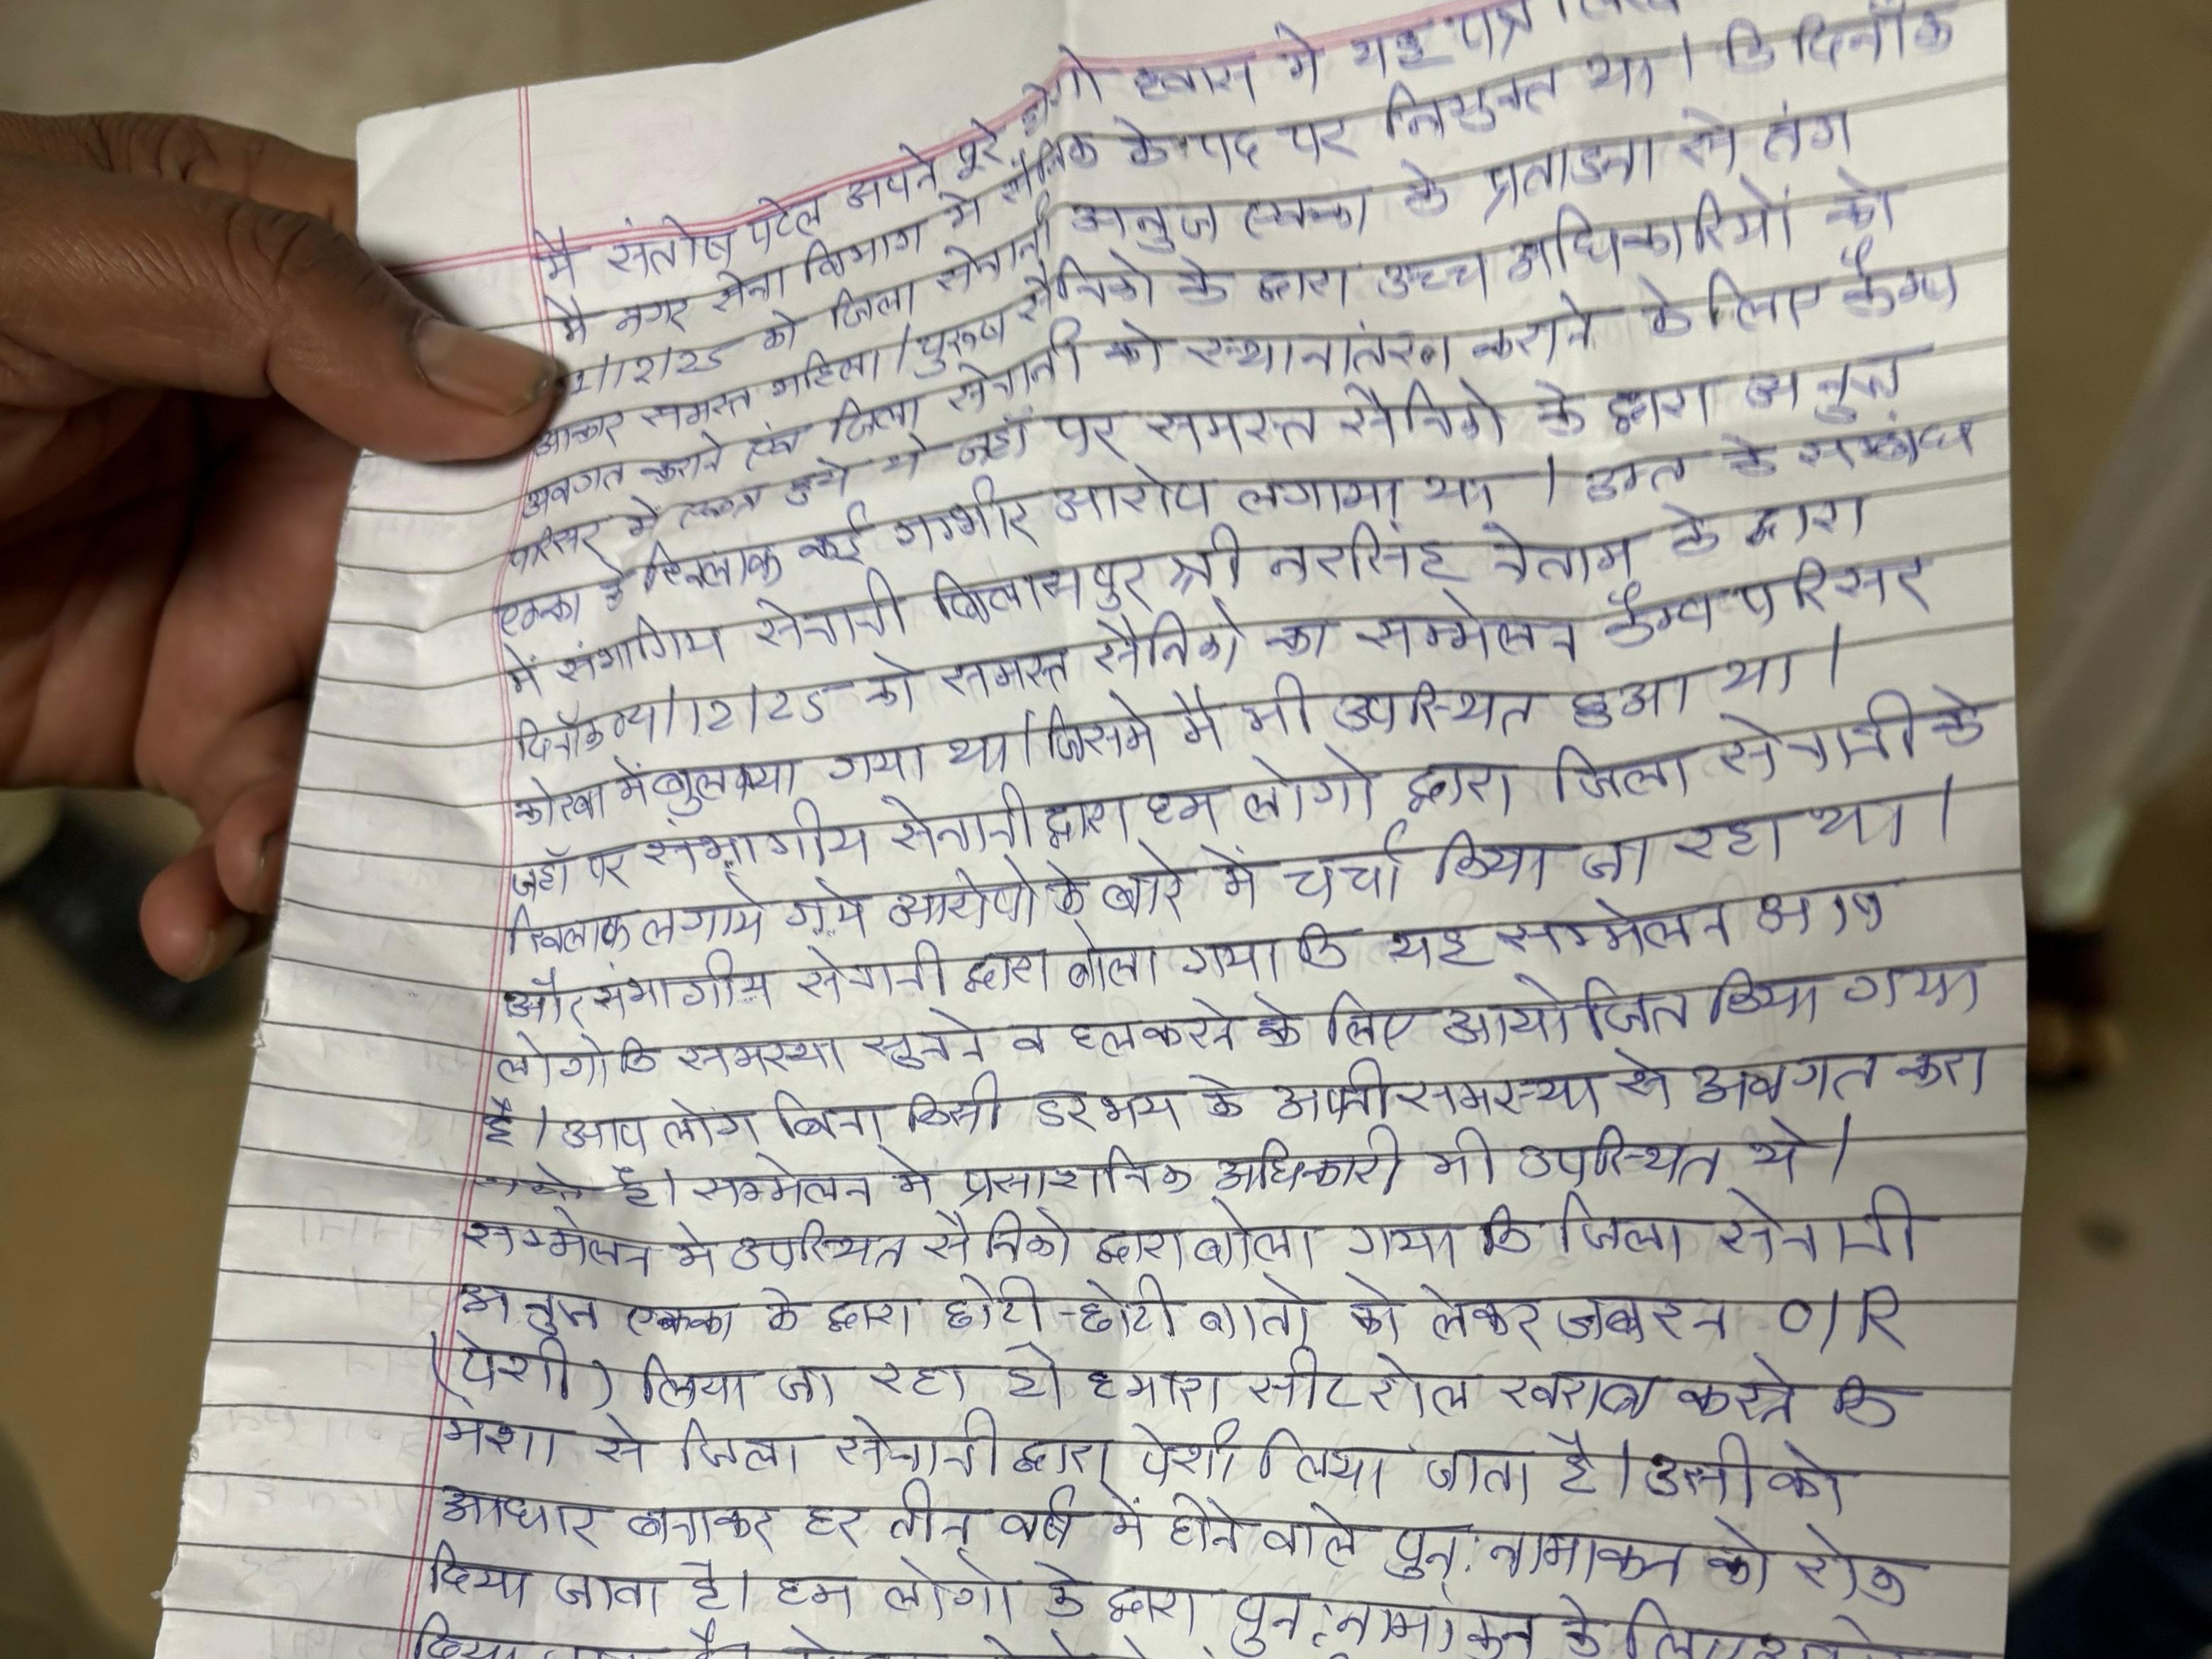 मै संतोष पटेल अपने पूरे होशो हवास मे यह पत्र
मै नगर सेना विभाग मे सैनिक के पद पर नियुक्त था। कि दिनाँक
1/12/25 को जिला सेनानी अनुज एक्का के प्रताडना से तंग
आकर समस्त महिला/पुरूष सैनिको के द्वारा उच्च अधिकारियों को
अवगत कराने एंव जिला सेनानी को स्थानातंरण कराने के लिए कैम्प
परिसर मे एकत्र हुये थे जहाँ पर समस्त सैनिको के द्वारा अनुज
एक्का के खिलाफ कई गम्भीर आरोप लगाया था। उक्त के सम्बंध
में संभागिय सेनानी बिलासपुर श्री नरसिंह नेताम के द्वारा
दिनाँक /12/25 को समस्त सैनिको का सम्मेलन कैम्प परिसर
में बुलाया गया था। जिसमे मै भी उपस्थित हुआ था।
जहाँ पर संभागीय सेनानी द्वारा हम लोगो द्वारा जिला सेनानी के
खिलाफ लगाये गये आरोपो के बारे में चर्चा किया जा रहा था।
और संभागीय सेनानी द्वारा बोला गया कि यह सम्मेलन आप
लोगो कि समस्या सुनने व हल करने के लिए आयोजित किया गया
है। आप लोग बिना किसी डर भय के अपनी समस्या से अवगत करा
सकते है। सम्मेलन मे प्रसाशनिक अधिकारी भी उपस्थित थे।
सम्मेलन मे उपस्थित सैनिको द्वारा बोला गया कि जिला सेनानी
अनुज एक्का के द्वारा छोटी-छोटी बातो को लेकर जबरन O/R
(पेशी) लिया जा रहा है। हमारा सीट रोल खराब करने कि
मंशा से जिला सेनानी द्वारा पेशी लिया जाता है। उसी को
आधार बनाकर हर तीन वर्ष में होने वाले पुन: नामाकन को रोक
दिया जाता है। हम लोगो के द्वारा पुन: नामांकन के लिए
दिया